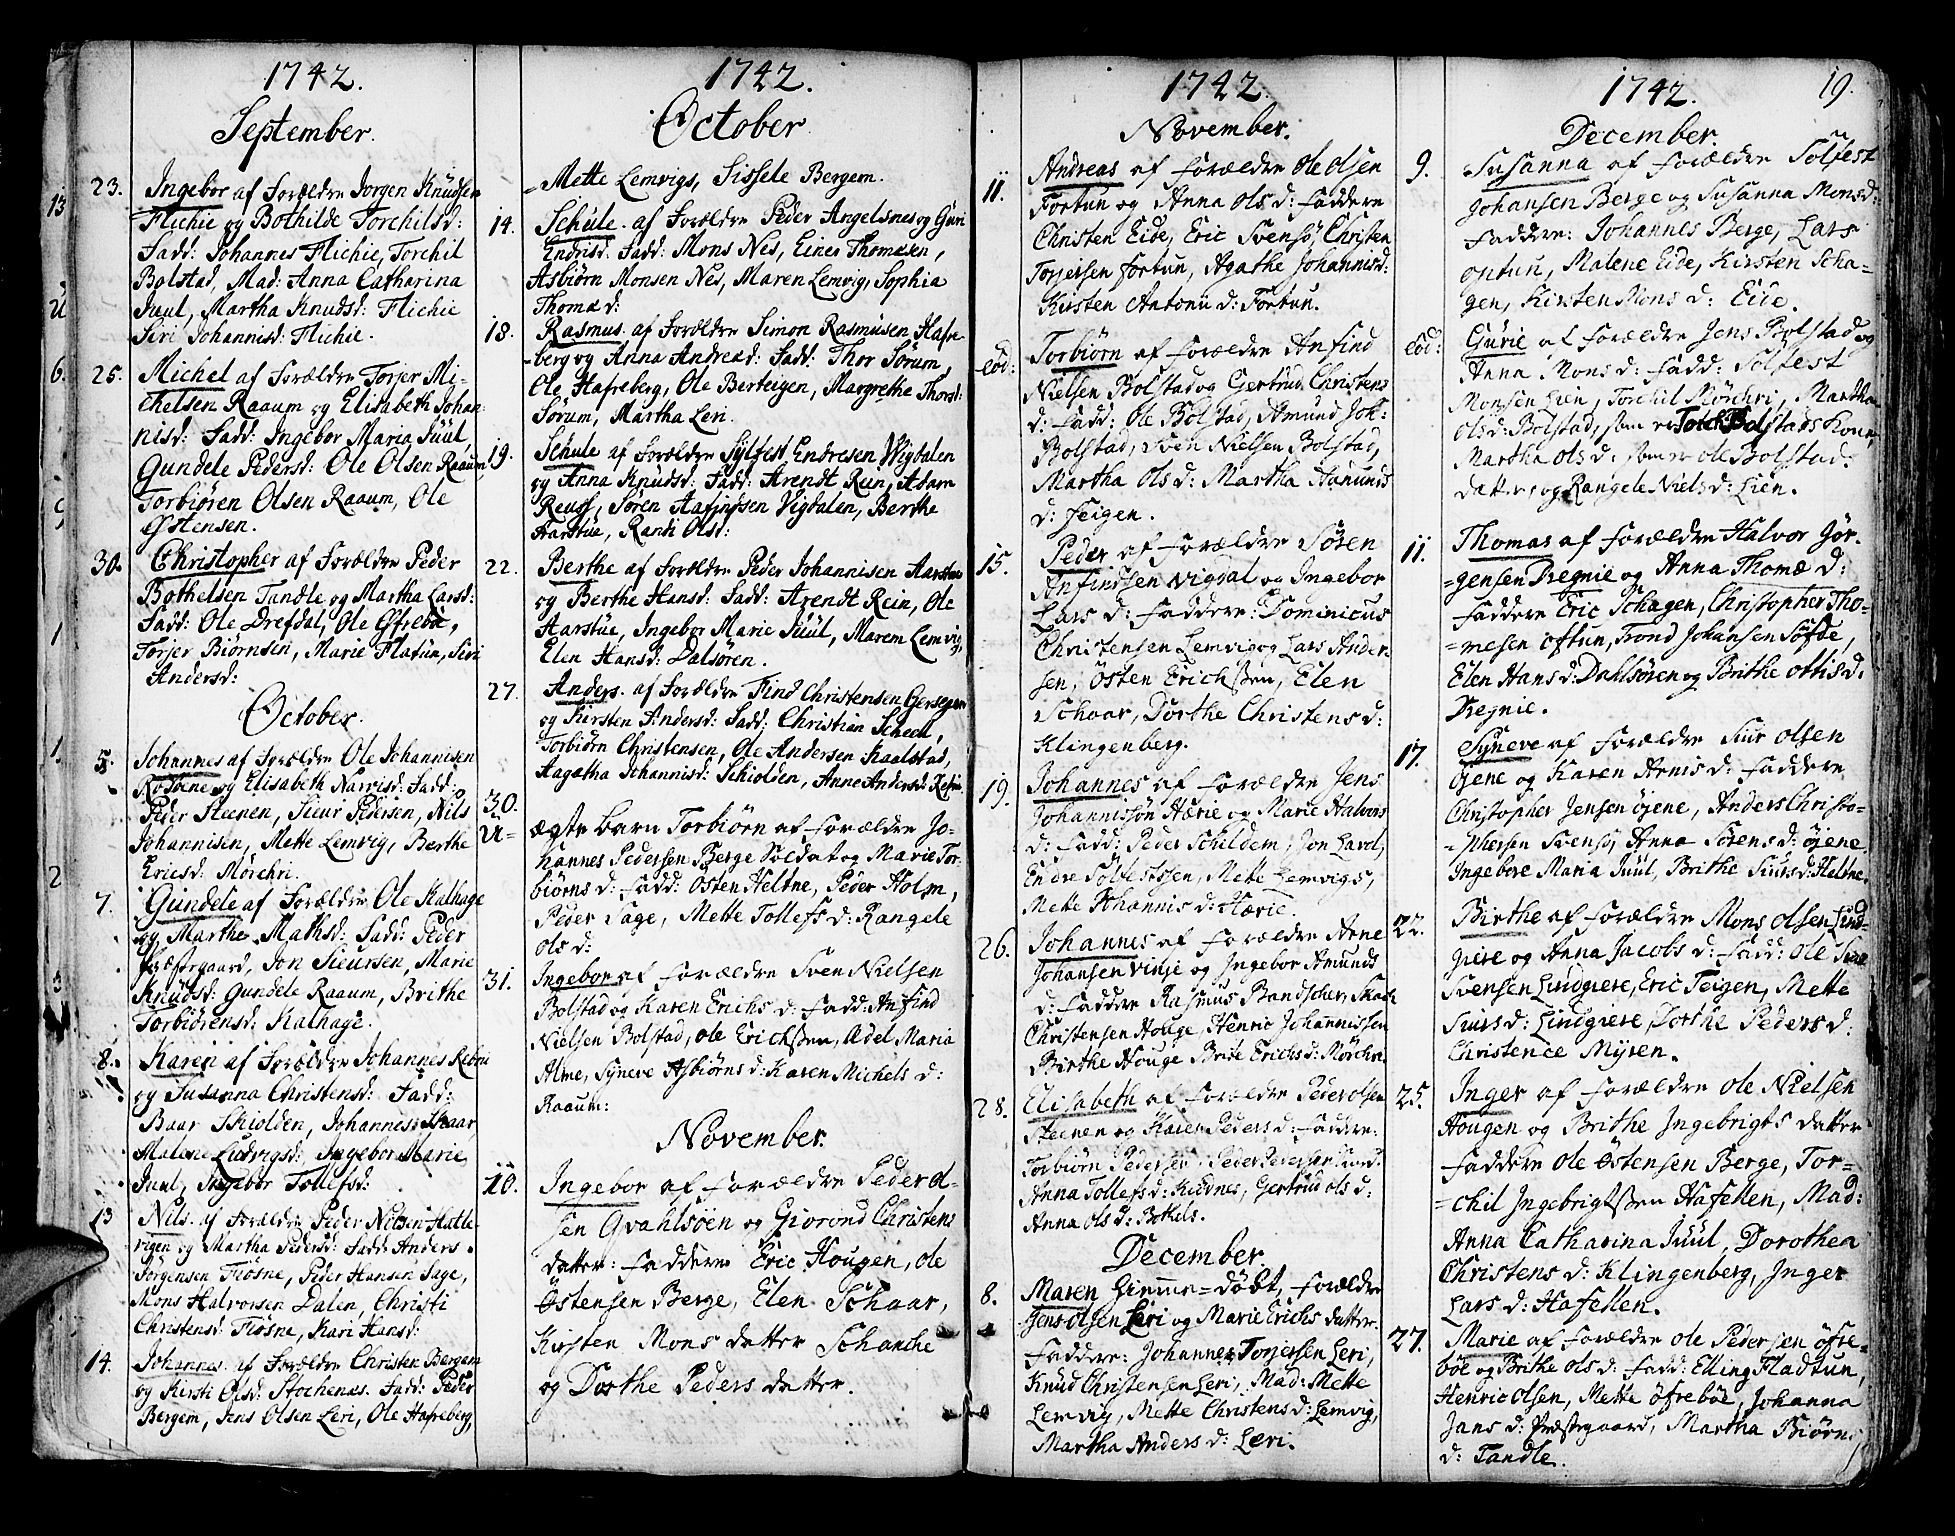 1742.
September.
23. Ingebor af Forældre Jorgen Knudsen
Flichie og Bothilde Torchilsd:
Fadd: Johannes Flichie, Torchil
Bolstad, Mad: Anna Catharina
Juul, Martha Knudsd: Flichie
Siri Johannisd: Flichie.
25. Michel af Forældre Torjer Mi-
chelsen Raaum og Elisabeth Johan
nisd: Fadd: Ingebor Maria Juul,
Gundele Pedersd: Ole Olsen Raaum
Torbiören Olsen Raaum, Ole
Östensen.
30. Christopher af Forældre Peder
Bothelsen Tandle og Martha Larsd:
Fadd: Ole Drefdal, Ole Öfrebö,
Torjer Biörnsen, Marie Flatun, Siri
Andersd:
October.
5. Johannes af Forældre Ole Johannisen
og Elisabeth Narvisd: Fadd:
Peder Steenen, Siur Pedersen, Nils
Johannisen, Mette Lemvig, Berthe
Ericsd: Mörchri.
7. Gundele af Forældre Ole Kalhage
og Marthe Mathsd: Fadd: Peder
Præstegaard, Jon Sieursen, Marie
Knudsd: Gundele Raaum, Brithe
Torbiörensd: Kalhage.
8. Karen af Forældre Johannes
og Susanna Christensd: Fadd:
Baar Skiolden, Johannes Skaar,
Malene Ludvigsd: Ingebor Marie
Juul, Ingebor Tollefsd:
13 Nils af Forældre Peder Nilsen Hatle-
vigen og Martha Pedersd: Fadd: Anders
Jörgensen Fiösne, Peder Hansen Sage,
Mons Halvorsen Dalen, Christi
Christensd: Fiösne, Kari Hansd:
14. Johannes af Forældre Christen Bergem
og Kirsti Olsd: Stochenes. Fadd: Peder
Bergem, Jens Olsen Leri, Ole Hafreberg,
1742.
October
Mette Lemvigs, Sissele Bergem.
14. Schule af Forældre Peder Angelsnes og Guri
Endrisd. Fadd: Mons Nes, Einer Thomesen,
Asbiörn Monsen Nes, Maren Lemvig, Sophia
Thomæd:
18. Rasmus af Forældre Simon Rasmusen Hafre
berg og Anna Andread: Fadd: Thor Sörum,
Ole Hafreberg, Ole Berteigen, Margrethe Thorsd:
Sörum, Martha Leri.
19. Schule af Forældre Sylfest Endresen Vigdalen
og Anna Knudsd: Fadd: Arendt Rein, Adam
Reuss, Sören Vigdalen, Berthe
Aarstue, Randi Olsd:
22. Berthe af Forældre Peder Johannisen Aarstue
og Berthe Hansd: Fadd: Arendt Rein, Ole
Aarstue, Ingebor Marie Juul, Maren Lemvig,
Elen Hansd: Dalsören.
27. Anders af Forældre Find Christensen
og Kirsten Andersd: Fadd: Christian
Torbiörn Christensen, Ole Andersen Kaalstad,
Aagatha Johannisd: Schiolden, Anne Andersd:
30.
U= ægte barn Torbiörn af forældre Jo-
hannes Pedersen Berge Soldat og Marie Tor-
biörns d: fadd: Östen Heltne, Peder Holm,
Peder Sage, Mette Tollefs d: Rangele
ols d:
31. Ingebor af forældre Sven Nielsen
Bolstad og Karen Erichs d: fadd: Anfind
Nielsen Bolstad, ole Erichssen, Adel Maria
Alme, Syneve Asbiörns d: Karen Michels d:
Raaum:
November.
10. Ingebor af forældre Peder ol-
sen Qvahlsöen og Giorond Christens
datter: faddere Eric Hougen, ole
Östensen Berge, Elen Schaar,
Kirsten Mons datter Schanche
og Dorthe Peders datter.
1742.
November.
11. Andreas af forældre ole olsen
Fortun og Anna ols d: faddere
Christen Eide, Eric Svensö, Christen
Torjersen fortun, Agathe Johannisd:
Kirsten Antoni d: Fortun.
eod: Torbiörn af forældre Anfind
Nielsen Bolstad og Gertrud Christens
d: fadd: ole Bolstad, Amund Joh:
Bolstad, Sven Nielsen Bolstad,
Martha ols d: Martha Amunds
d: feigen.
15. Peder af forældre Sören
Anfindsen Vigdal og Ingebor
Lars d: faddere: Dominicus
Christensen Lemvig og Lars Ander-
sen, Östen Erichssen, Elen
Schaar, Dorthe Christens d:
Klingenberg.
19. Johannes af forældre Jens
Johannisön Hærie og Marie Halvors
d: fadd: Peder Schildem, Jon
Endre Solfestssen, Mette Lemvigs,
Mette Johannis d: Hærie.
26. Johannes af forældre Arne
Johansen Vinje og Ingebor Amunds
d: faddere Rasmus Bandscher,
Christensen Houge, Henric Johannissen
Birthe Houge Brite Erichs d: Mörchri
28. Elisabeth af forældre Peder olsen
Steenen og Karen Peders d: faddere:
Torbiörn Pedersen, Peder Pedersen
Anna Tollefs d: Kildnes, Gertrud ols d:
Anna ols d: Bothels.
December.
8. Maren Hiemme=döbt, forældre
Jens olsen Leri og Marie Erichs datter.
Faddere: Johannes Torjersen Leri,
Knud Christensen Leri, Mad: Mette
Lemvig, Mette Christens d: Lemvig,
Martha Anders d: Leri.
1742.
19.
December.
9. Susanna af forældre Solfest
Johansen Berge og Susanna Monsd:
Faddere: Johannes Berge, Lars
optun, Malene Eide, Kirsten Scha=
gen, Kirsten Mons d: Eide.
eod: Gurie af forældre Jens Bolstad og
Anna Mons d: fadd: Solfest
Monsen Lien, Torchil Mörchri, Martha
ols d: Bolstad, som er Bolstads Kone,
Martha ols d: som er ole Bolstads
datter, og Rangele Niels d: Lien.
11. Thomas af forældre Halvor Jör-
=gensen Dregnie og Anna Thomæ d:
faddere Eric Schagen, Christopher Tho=
=mesen oftun, Trond Johansen Söfde,
Elen Hans d: Dahlsören og Brithe ottis d.
Dregnie.
17. Syneve af forældre Siur olsen
öyene og Karen Arnis d: faddere
Christopher Jensen öyene, Anders Christo=
=phersen Svensö, Anna Sörens d: öyene
Ingebore Maria Juul, Brithe Siurs d: Heltne.
22. Birthe af forældre Mons olsen Lind-
giere og Anna Jacobs d: fadd: ole
Svensen Lindgiere, Eric Teigen, Mette
Siurs d: Lindgiere, Dorthe Peders d:
Christence Myren.
25. Inger af forældre ole Nielsen
Hougen og Brithe Ingebrigts datter
faddere ole Östensen Berge, Tor=
=chil Ingebrigtssen Hafellen, Mad:
Anna Catharina Juul, Dorothea
Christens d: Klingenberg, Inger
Lars d: Hafellen.
27. Marie af forældre ole Pedersen öfre-
böe og Brithe ols d: fadd: Elling Fladtun,
Henric olsen, Mette öfreböe, Johanna
Jans d: Præstegaard, Martha Biörns
d: Tandle.